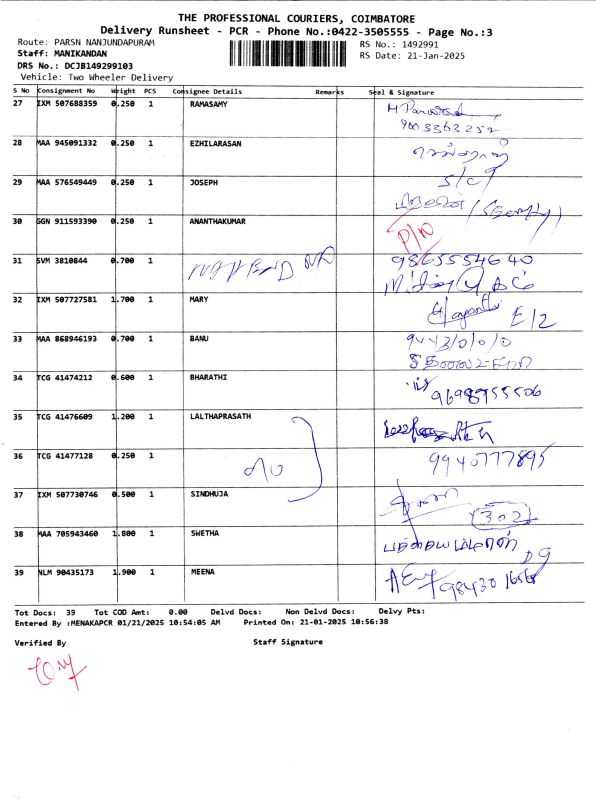 THE PROFESSIONAL COURIERS, COIMBATORE
Delivery Runsheet - PCR - Phone No.:0422-3505555 - Page No.:3
Route: PARSN NANJUNDAPURAM
RS No.: 1492991
Staff: MANIKANDAN
RS Date: 21-Jan-2025
DRS No.: DCJB149299103
Vehicle: Two Wheeler Delivery
S No Consignment No Weight PCS Consignee Details Remarks Seal & Signature
27 IXM 507688359 0.250 1 RAMASAMY
9003363252
28 MAA 945091332 0.250 1 EZHILARASAN
29 MAA 576549449 0.250 1 JOSEPH
30 GGN 911593390 0.250 1 ANANTHAKUMAR
P/N
31 SVM 3810844 0.700 1
9865554640
32 IXM 507727581 1.700 1 MARY
E/2
33 MAA 868946193 0.700 1 BANU
34 TCG 41474212 0.600 1 BHARATHI
35 TCG 41476609 1.200 1 LALTHAPRASATH
36 TCG 41477128 0.250 1
9940777895
37 IXM 507730746 0.500 1 SINDHUJA
302
38 MAA 705943460 1.800 1 SWETHA
39 NLM 90435173 1.900 1 MEENA
Tot Docs: 39 Tot COD Amt: 0.00 Delvd Docs: Non Delvd Docs: Delvy Pts:
Entered By :MENAKAPCR 01/21/2025 10:54:05 AM Printed On: 21-01-2025 10:56:38
Verified By Staff Signature